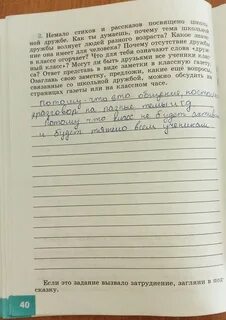 2. Немало стихов и рассказов посвящено школь-
ной дружбе. Как ты думаешь, почему тема школьной
дружбы волнует людей разного возраста? Какое значе-
ние она имеет для человека? Почему отсутствие дружбы
в классе огорчает? Что для тебя означают слова «друж-
ный класс»? Могут ли быть друзьями все ученики клас-
са? Ответ представь в виде заметки в классную газету.
Озаглавь свою заметку, предложи, какие ещё вопросы,
связанные со школьной дружбой, можно обсудить на
страницах газеты или на классном часе.
потому что это общение,
разговор на разные темы и тд
потому что класс не будет
и будет тяжело всем ученикам
Если это задание вызвало затруднение, загляни в под-
сказку.
40